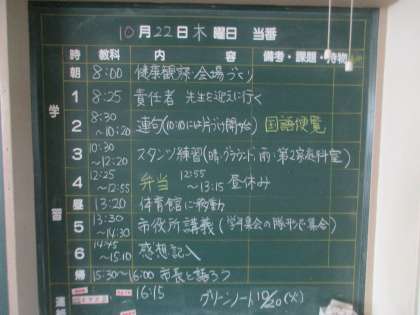 10月22日木曜日 当番
時 教科 内容 備考・課題・持物
朝 8:00 健康観察・会場づくり
1 8:25 責任者 先生を迎えに行く
2 8:30～10:20 連句(10:10には片づけ開始) 国語便覧
3 10:30～12:20 スタンツ練習(晴・グラウンド、雨・第2家庭科室)
4 12:25～12:55 弁当 12:55～13:15 昼休み
昼 13:20 体育館に移動
5 13:30～14:30 市役所講義(学年集会の隊形で集合)
6 14:45～15:10 感想記入
帰 15:30～16:00 市長と語ろう
16:15 グリーンノート10/20(火)
学習